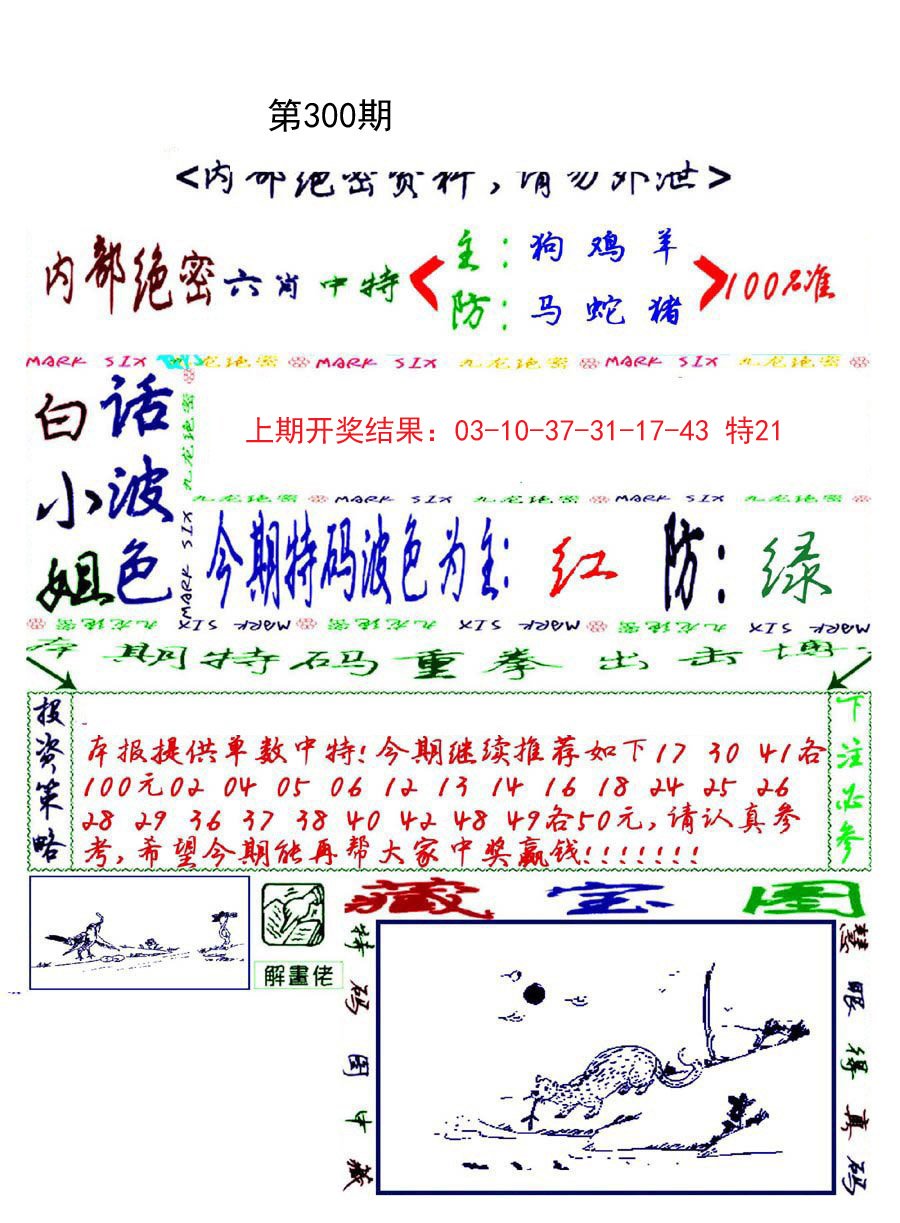 第300期
<内部绝密资料，请勿外泄>
内部绝密六肖中特
主：狗 鸡 羊
防：马 蛇 猪
100%准
MARK SIX 九龙绝密 MARK SIX 九龙绝密 MARK SIX 九龙绝密
白话
小波
姐色
九龙绝密
MARK SIX
上期开奖结果：03-10-37-31-17-43 特21
九龙绝密 MARK SIX 九龙绝密 MARK SIX 九龙绝密
今期特码波色为主：红 防：绿
九龙绝密 MARK SIX 九龙绝密 MARK SIX 九龙绝密 MARK SIX
本期特码重拳出击博
投资策略
本报提供单数中特！今期继续推荐如下17 30 41各
100元02 04 05 06 12 13 14 16 18 24 25 26
28 29 36 37 38 40 42 48 49各50元，请认真参
考，希望今期能再帮大家中奖赢钱！！！！！！！
下注必参
解畫佬
藏宝图
特码图中藏
慧眼得真码